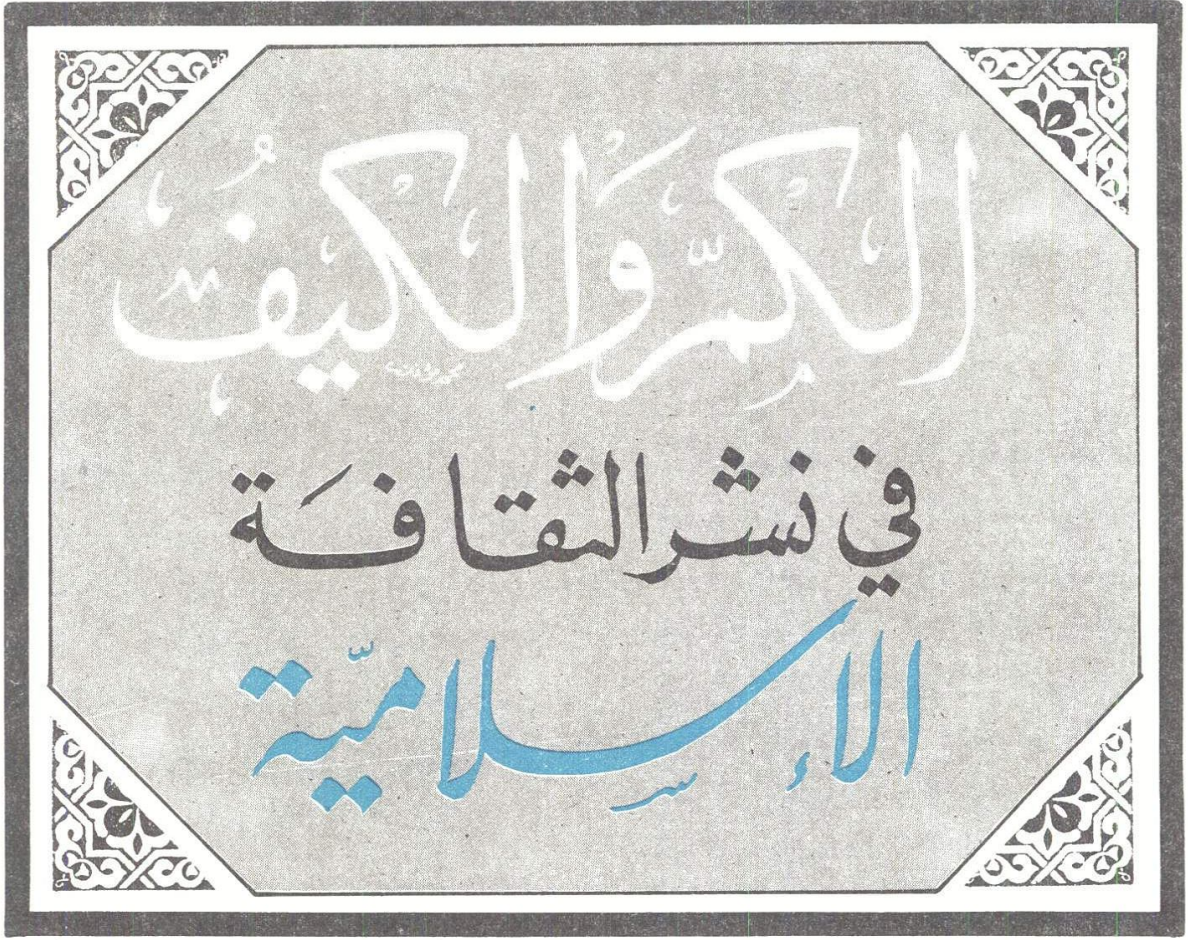 الكمّ وَالكيفُ
في نشر الثقافَة
الإسلاميّة